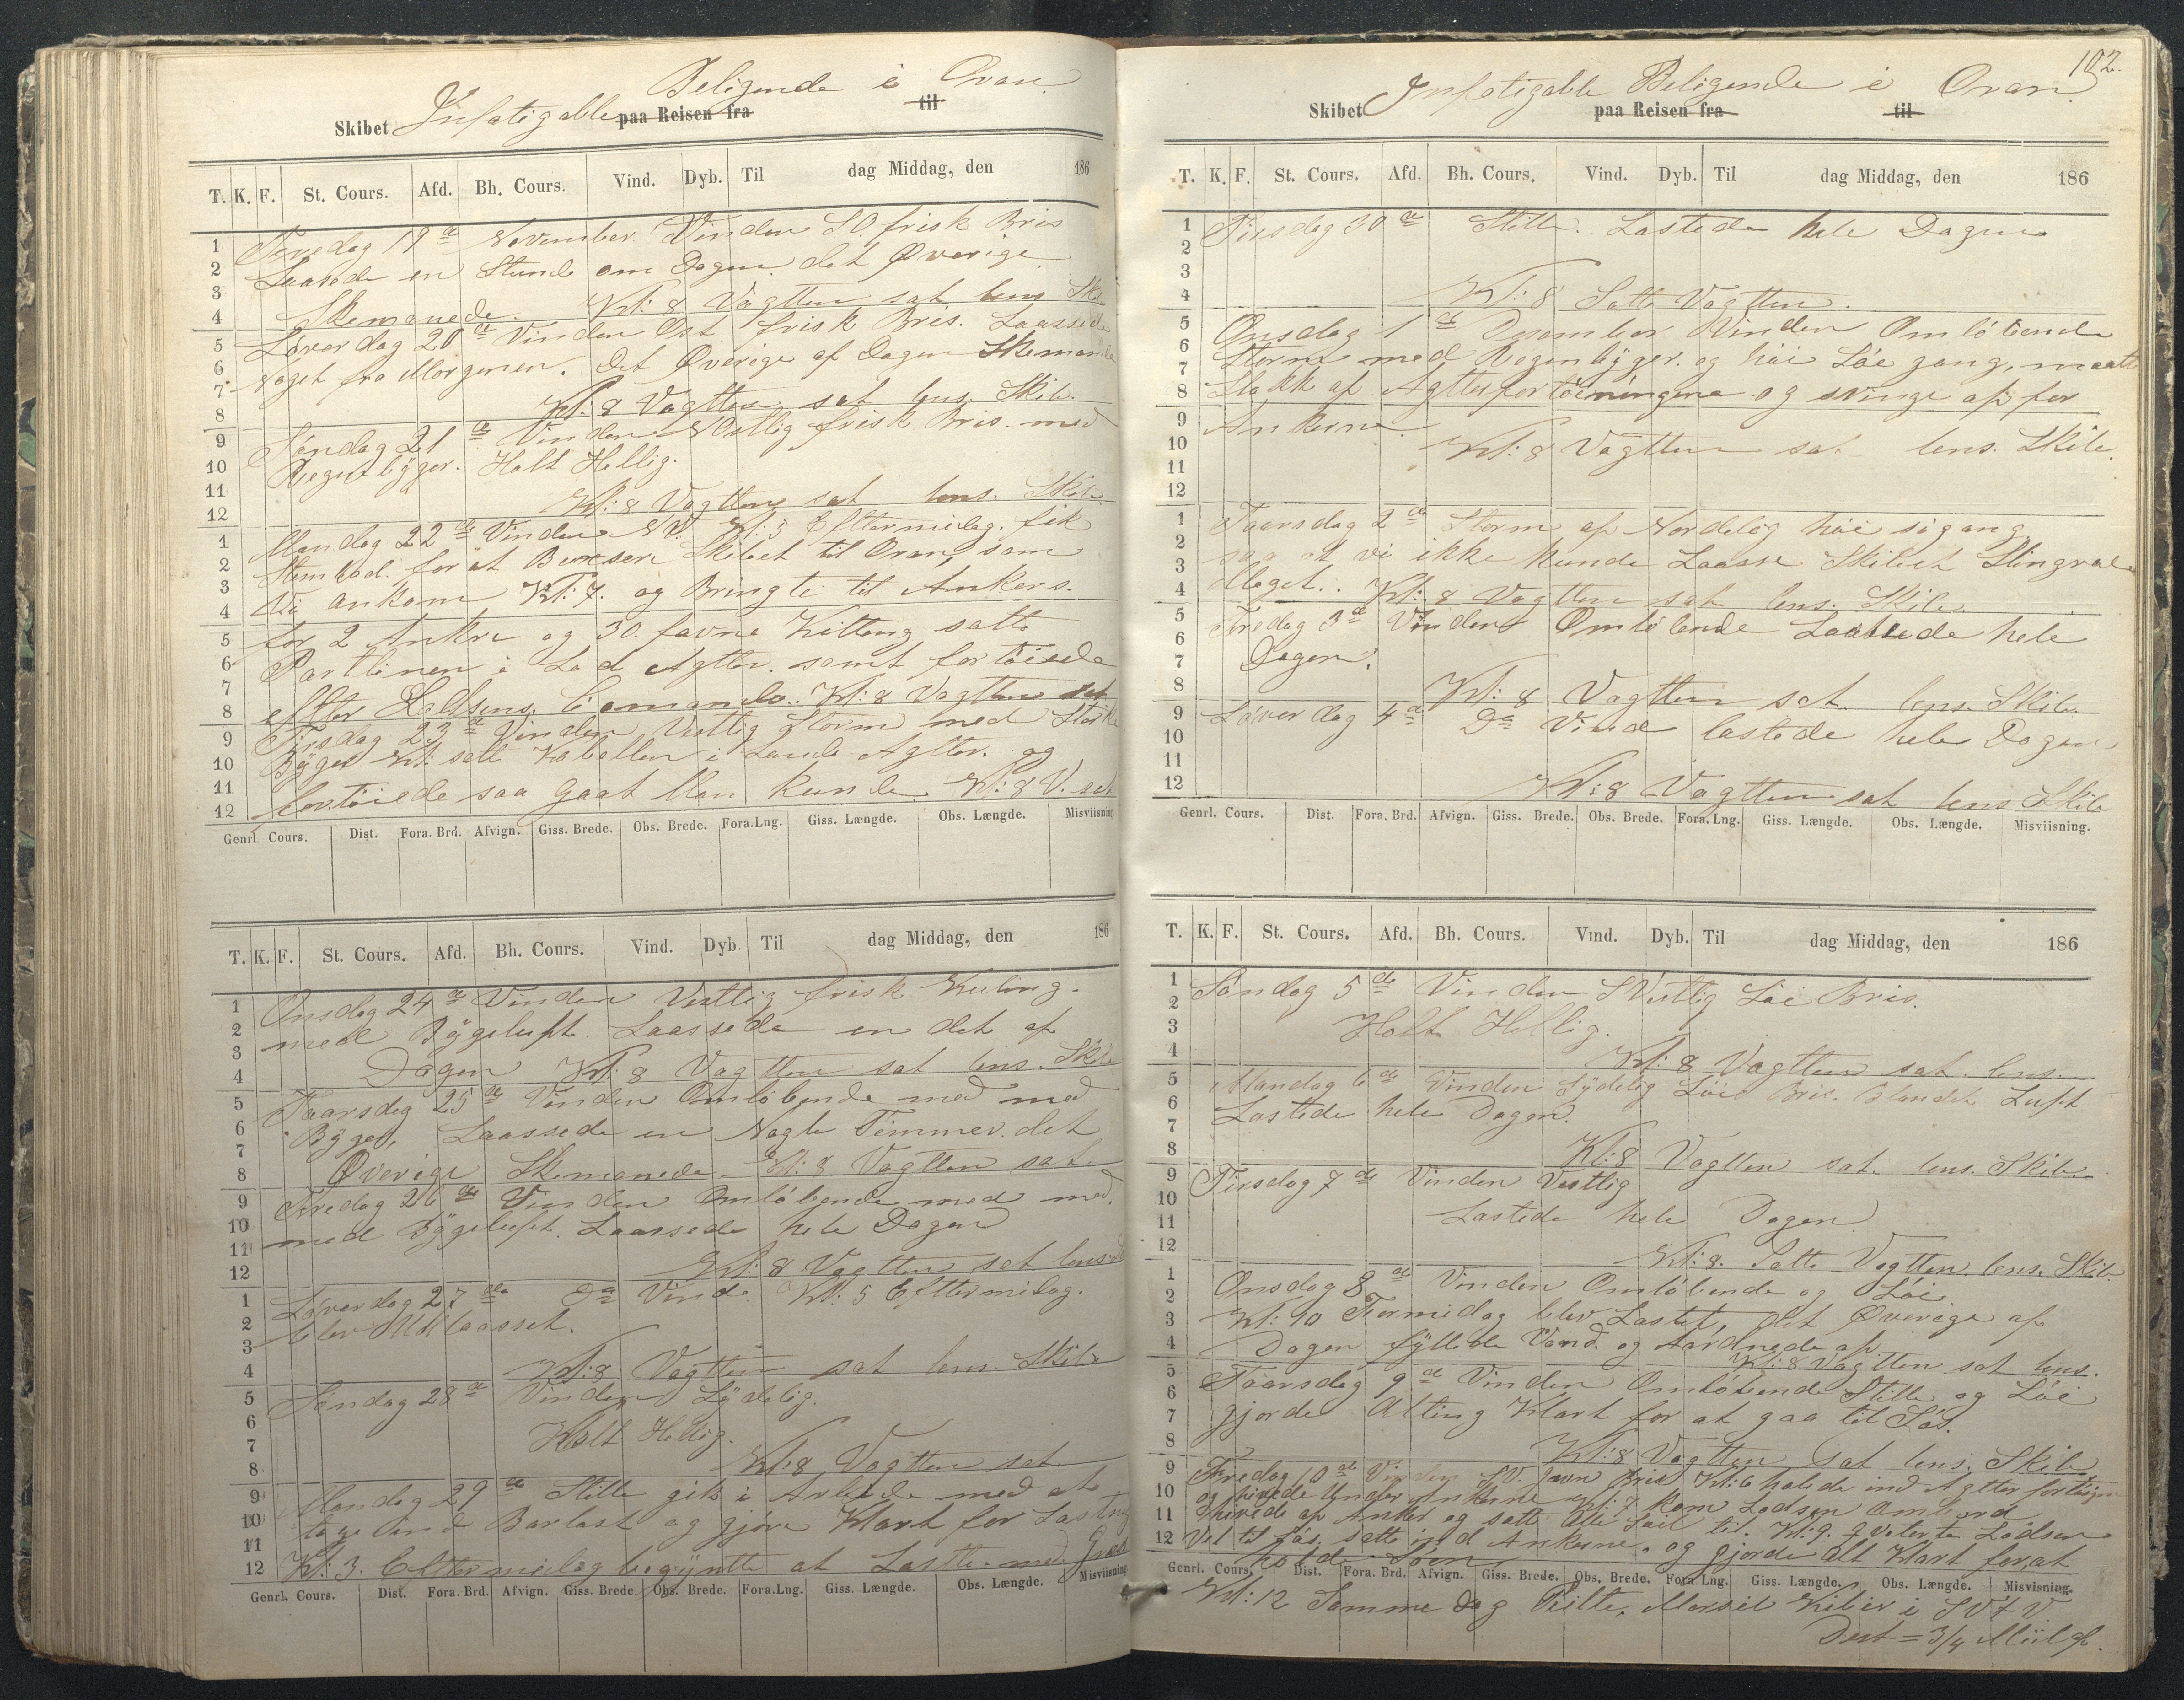 Beligende i Oran.
Skibet Infatigable paa Reisen fra til
T. K. F. St. Cours. Afd. Bh. Cours. Vind. Dyb. Til dag Middag, den 186
1
2
3
4
5
6
7
8
9
10
11
12
1
2
3
4
5
6
7
8
9
10
11
12
Feredag 19de November. Vinden SO. frisk Bris
Laasede en Stund om Dagen det Øverige
Skemanede. Kl: 8 Vagtten sat lens Skib
Løverdag 20de Vinden Ost frisk Bris. Laassede
Noget fra Morgenen. Det Øverige af Dagen Skemanede
Kl: 8 Vagtten sat lens. Skib.
Søndag 21de Vinden Vestlig frisk Bris. med
Regenbÿger. Holt Hellig.
Kl: 8 Vagtten sat lens. Skib.
Mandag 22de Vinden NV. Kl: 3 Eftermidag. fik
Stembaad. for at Buxsere Skibet til Oran, som
Vi ankom Kl: 7. og Bringte til Ankers.
for 2 Ankre og 30 favne Kitteng satte
Partlinen i Land Agtter. samt fortöiede
efter Lodsens Comando. Kl: 8 Vagtten sat
Tirsdag 23de Vinden Vestlig Storm med Stærke
Bÿger Kl: satt Kabellen i Lande Agtter. og
fortöiede saa gaat Man kunde. Kl: 8 V. sat
Genrl. Cours. Dist. Fora. Brd. Afvign. Giss. Brede. Obs. Brede. Fora. Lng. Giss. Længde. Obs. Længde. Misviisning
T. K. F. St. Cours. Afd. Bh. Cours. Vind. Dyb. Til dag Middag, den 186
1
2
3
4
5
6
7
8
9
10
11
12
1
2
3
4
5
6
7
8
9
10
11
12
Onsdag 24de Vinden Vestlig frisk Kuling.
med Bÿgeluft. Laassede en det af
Dagen Kl: 8 Vagtten sat lens. Skib
Taarsdag 25de Vinden Omløbende med med
Bÿger, Laassede en Nogle Timmer. det
Øverige Skemanede. Kl: 8 Vagtten sat.
Feredag 26de Vinden Omløbende med med.
med Bÿgeluft. Laassede hele Dagen
Kl: 8 Vagtten sat lens.
Løverdag 27de Do Vind. Kl: 5 Eftermidag.
blev Udlaasset.
Kl: 8 Vagtten sat lens. Skib
Søndag 28de Vinden Sÿdelig.
Holt Hellig.
Kl: 8 Vagtten sat.
Mandag 29de Stille gik i Arbeide med at
tage ind Barlast og gjøre Klart for Lastning
Kl: 3. Eftermidag begÿntte at Laste. med
Genrl. Cours. Dist. Fora. Brd. Afvign. Giss. Brede. Obs. Brede. Fora. Lng. Giss. Længde. Obs. Længde. Misviisning
102.
Skibet Infatigable Beligende i Oran. paa Reisen fra til
T. K. F. St. Cours. Afd. Bh. Cours. Vind. Dyb. Til dag Middag, den 186
1
2
3
4
5
6
7
8
9
10
11
12
1
2
3
4
5
6
7
8
9
10
11
12
Tirsdag 30de Stille. Lastede hele Dagen
Kl: 8 Satte Vagtten.
Onsdag 1de Desember Vinden Omløbende
Storm med Regenbÿger. og höi Söe gang, maatte
Slakk af Agtterfortöiningene og svinge op for
Ankerne.
Kl: 8 Vagtten sat lens. Skib.
Taarsdag 2de Storm af Nordelig höi sögang,
saa at vi ikke kunde Laasse Skibet Slingrede
Meget. Kl: 8 Vagtten sat lens. Skib
Feredag 3de Vinden Omløbende Lastede hele
Dagen.
Kl: 8 Vagtten sat. lens. Skib
Løverdag 4de Do Vind lastede hele Dagen
Kl: 8 Vagtten sat lens Skib
Genrl. Cours. Dist. Fora. Brd. Afvign. Giss. Brede. Obs. Brede. Fora. Lng. Giss. Længde. Obs. Længde. Misviisning.
T. K. F. St. Cours. Afd. Bh. Cours. Vind. Dyb. Til dag Middag, den 186
1
2
3
4
5
6
7
8
9
10
11
12
1
2
3
4
5
6
7
8
9
10
11
12
Søndag 5de Vinden SVestlig Löi Bris.
Holt Hellig.
Kl: 8 Vagtten sat. lens.
Mandag 6de Vinden Sÿdelig Löi Bris. blandet Luft
Lastede hele Dagen.
Kl: 8 Vagtten sat. lens. Skib
Tirsdag 7de Vinden Vestlig
Lastede hele Dagen.
Kl: 8. Satte Vagtten. lens. Skib.
Onsdag 8de Vinden Omløbende og Löi
Kl: 10 Formidag blev Lastet, det Øverige af
Dagen fÿllede Vand. og Aardnede op
Kl: 8 Vagtten sat lens.
Taarsdag 9de Vinden Omløbende Stille og Löi
gjorde Alting Klart for at gaa til Søs.
Kl: 8 Vagtten sat lens. Skib
Feredag 10de Vinden SV. jævn Bris Kl: 6 halede ind Agtter fortöining
og hivede Under Ankerne Kl: 7 kom Lodsen ombord
hivede op Anker og satte Alle Seil til. Kl: 9. Qviterte Lodsen
Vel til Søs, satte ind Ankerne, og gjorde Alt Klart for, at
holde Söen
Genrl. Cours. Dist. Fora. Brd. Afvign. Giss. Brede. Obs. Brede. Fora. Lng. Giss. Længde. Obs. Længde. Misvisning.
Kl: 12 Samme Dag Peilte, Marsel Kibir i SVtV
Dest = 3/4 Miil